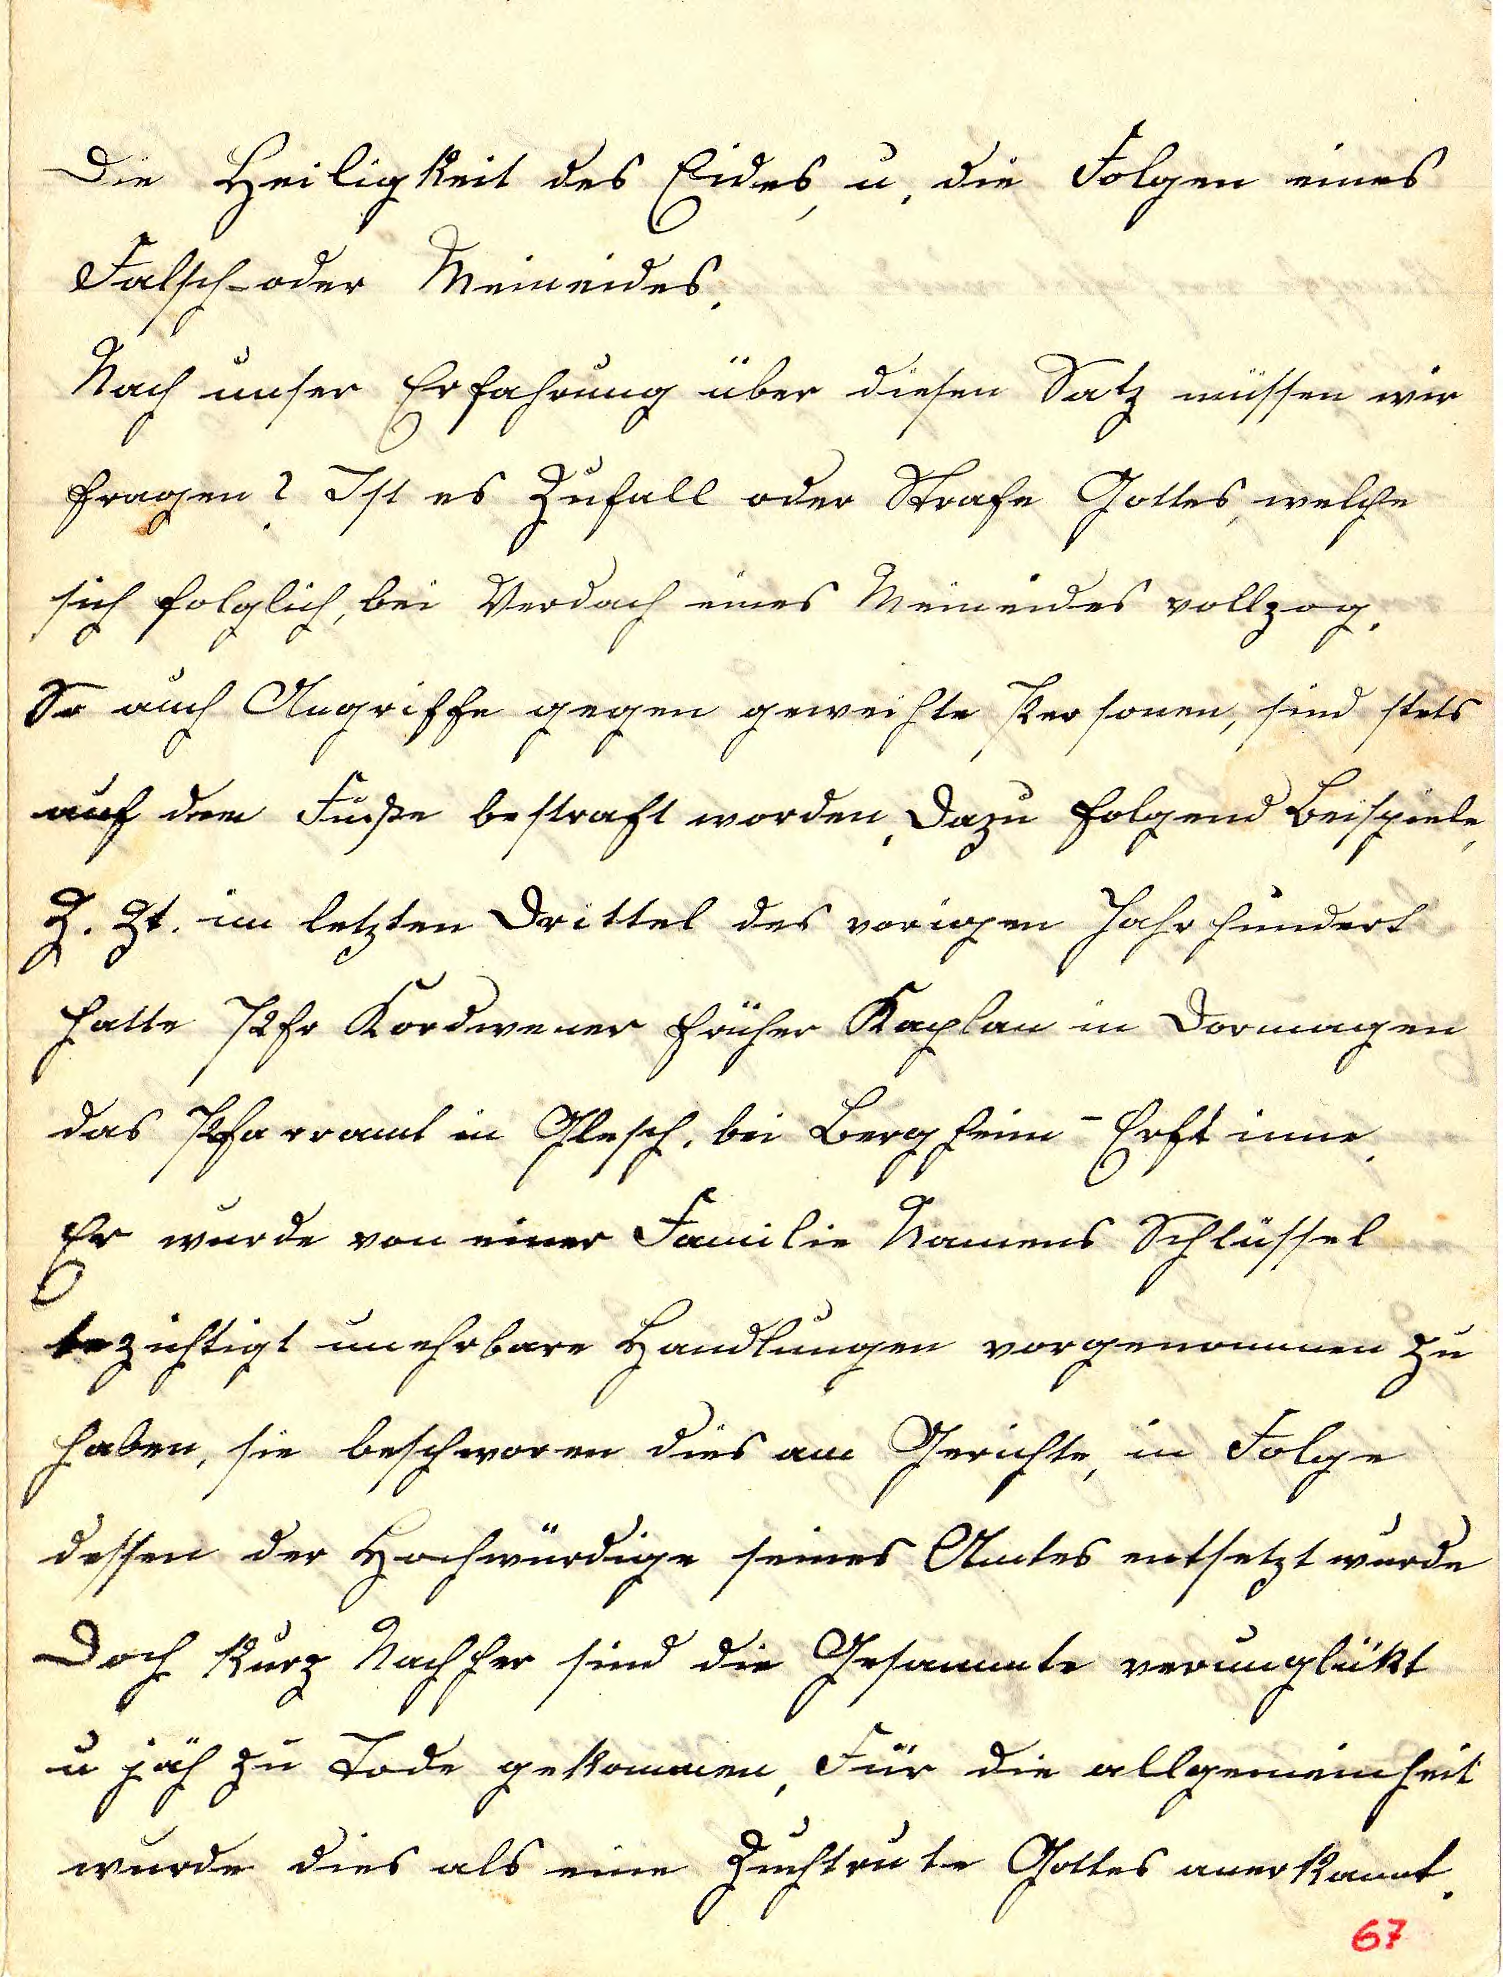 Die Heiligkeit des Eides, u. die Folgen eines
Falsch-oder Meineides.
Nach unser Erfahrung über diesen Satz müssen wir
fragen? Ist es Zufall oder Strafe Gottes, welche
sich folglich, bei Verdach eines Meineides vollzog.
So auch Angriffe gegen geweihte Personen, sind stets
auf dem Fuße bestraft worden. Dazu folgend Beispiele,
Z. Zt. im letzten Drittel des vorigen Jahrhundert
hatte Pfr Kordwener früher Kaplan in Dormagen
das Pfarramt in Glesch, bei Bergheim - Erft inne.
Er wurde von einer Familie Namens Schlüssel
bezichtigt unehrbare Handlungen vorgenommen zu
haben, sie beschworen dies am Gerichte, in Folge
dessen der Hochwürdige seines Amtes entsetzt wurde
Doch kurz Nachher sind die Gesammte verunglükt
u jäh zu Tode gekommen, Für die allgemeinheit
wurde dies als eine Zuchtrute Gottes anerkannt.
67